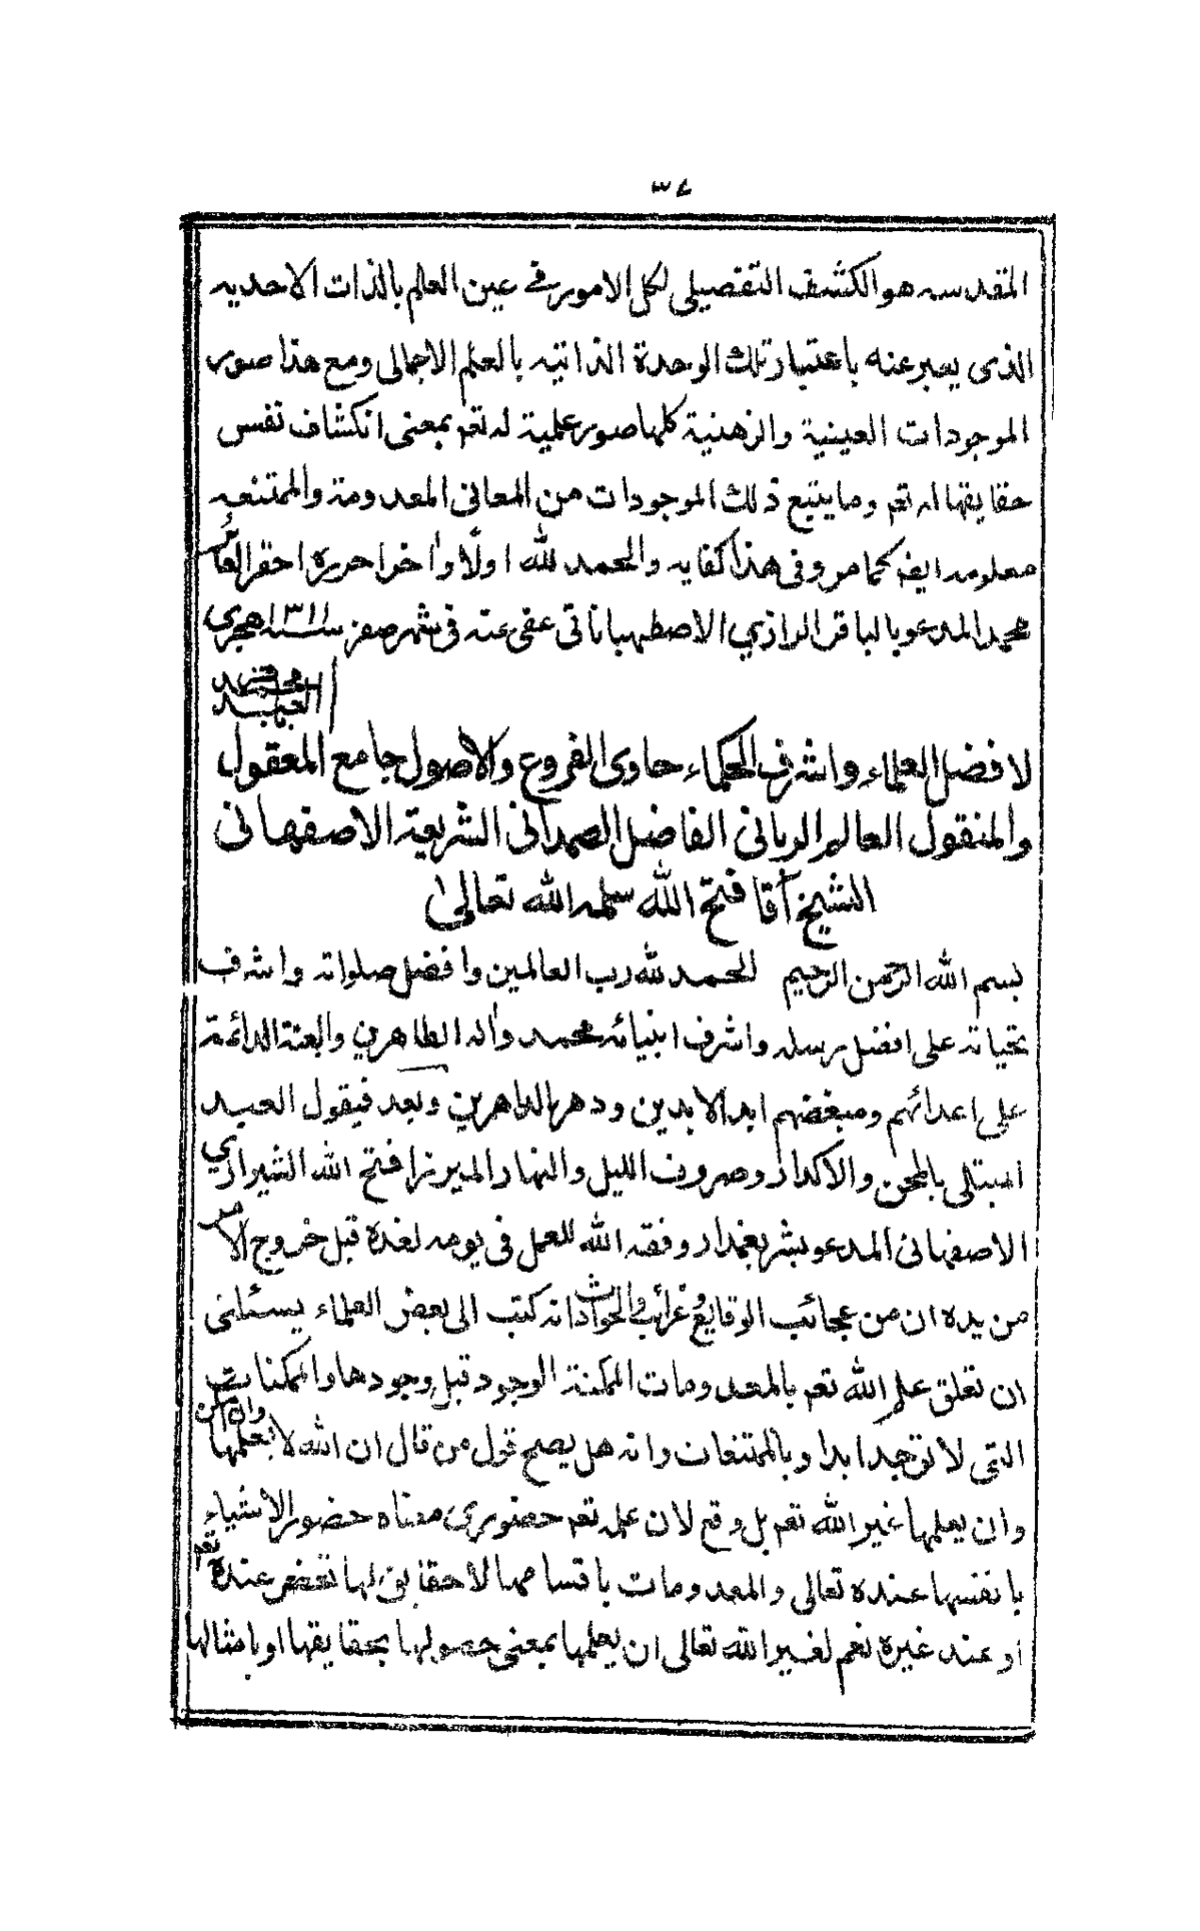 ٣٤
المقدسه هو الكشف التفصيلى لكل الامور فى عين العالم بالذات الاحديه
الذى يعبر عنه باعتبار تلك الوحدة الذاتيه بالعلم الاجمالى ومع هذا صور
الموجودات العينية والزهنية كلها صور علمية له تعم بمعنى انكشاف نفس
حقايقها له تعم وما يتبع ذلك الموجودات من المعانى المعدومة والممتنعه
معلومه ايض كما مر وفى هذا كفايه والحمد لله اولًا واخرا حرره احقر العباد
محمد المدعو بالباقر الرازي الاصطهباناتى عفى عنه فى شهر صفر سنه ١٣١١ هجري
لافضل العلماء واشرف الحكماء حاوى الفروع والاصول جامع المعقول
والمنقول العالم الربانى الفاضل الصمدانى الشريعة الاصفهانى
الشيخ آقا فتح الله سلمه الله تعالى
بسم الله الرحمن الرحيم الحمد لله رب العالمين وافضل صلواته واشرف
تحياته على افضل رسله واشرف انبيائه محمد واله الطاهرين والعنة الدائمة
على اعدائهم ومبغضهم ابد الابدين ودهر الداهرين وبعد فيقول العبد
المبتلى بالمحن والاكدار وصروف الليل والنهار الميرزا فتح الله الشيرازي
الاصفهانى المدعو بشريعتمدار وفقه الله للعمل فى يومه لغده قبل خروج الامر
من يده ان من عجائب الوقايع وغرائب الحوادث انه كتب الى بعض العلماء يسئلنى
ان تعلق علم الله تعم بالمعدومات الممكنة الوجود قبل وجودها والممكنات
التى لا توجد ابدا وبالممتنعات وانه هل يصح قول من قال ان الله لا يعلمها وان امكن
وان يعلمها غير الله تعم بل وقع لان علمه تعم حضورى معناه حضور الاشياء
بانفسها عنده تعالى والمعدومات باقسامها لا حقايق لها تحضر عنده تعم
او عند غيره نعم لغير الله تعالى ان يعلمها بمعنى حصولها بحقايقها او بامثالها